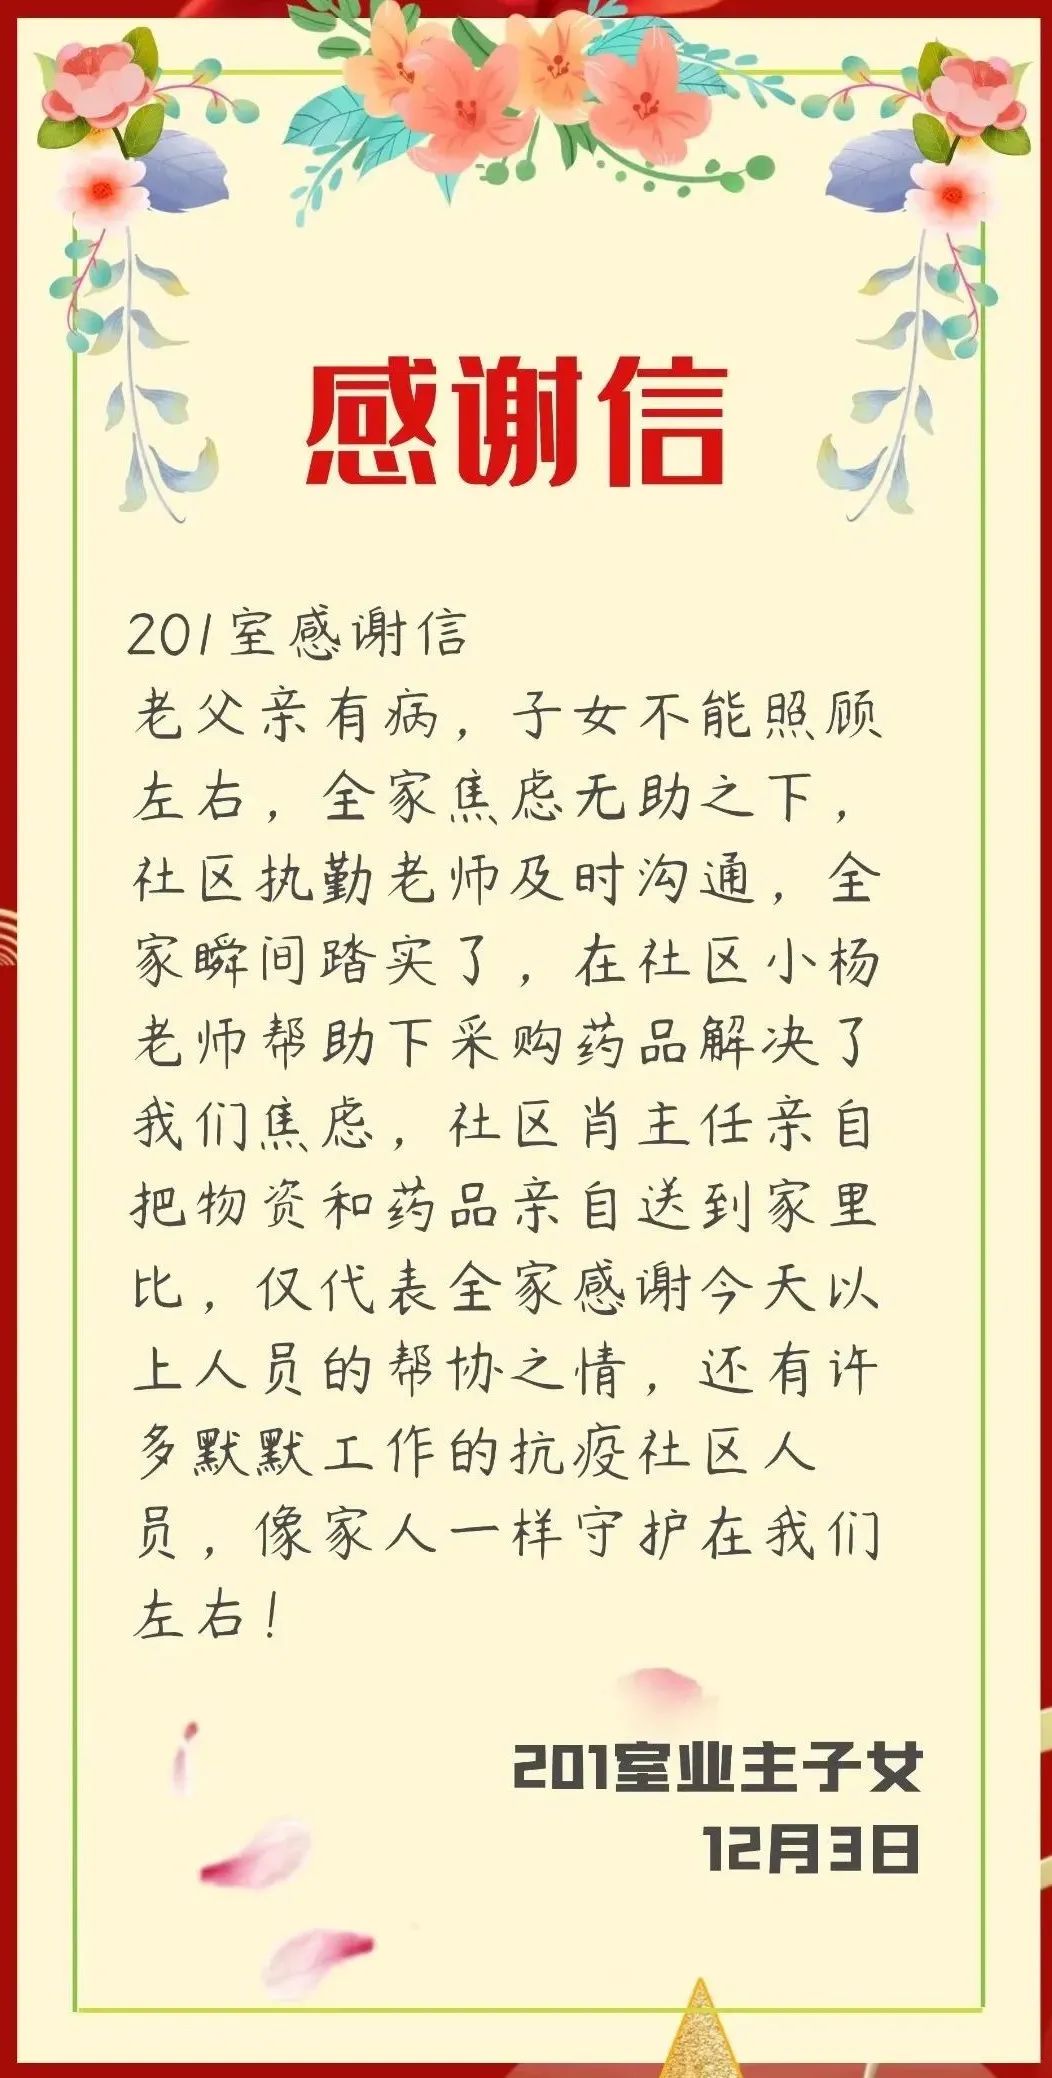 感谢信
201室感谢信
老父亲有病，子女不能照顾
左右，全家焦虑无助之下，
社区执勤老师及时沟通，全
家瞬间踏实了，在社区小杨
老师帮助下采购药品解决了
我们焦虑，社区肖主任亲自
把物资和药品亲自送到家里
比，仅代表全家感谢今天以
上人员的帮协之情，还有许
多默默工作的抗疫社区人
员，像家人一样守护在我们
左右！
201室业主子女
12月3日